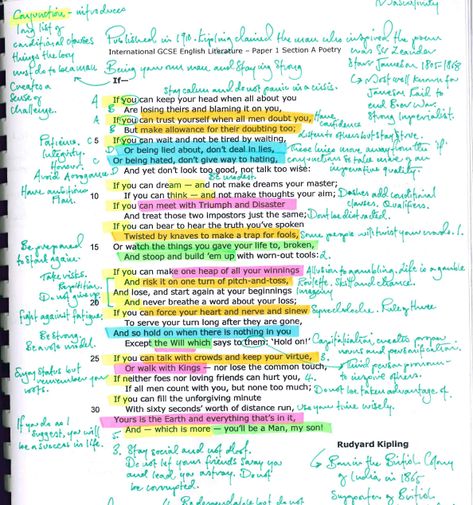 Masculinity
Conjunction - introduces
long list of
conditional clauses
things the boy
must do to be a man
Creates a
sense of
challenge.
Published in 1910. Kipling claimed the man who inspired the poem
was Sir Leander
Starr Jameson 1805-1865
International GCSE English Literature – Paper 1 Section A Poetry
Being your own man and staying strong
If—
Stay calm and do not panic in a crisis.
Most well known for
Jameson Raid to
end Boer War
Strong Imperialist.
If you can keep your head when all about you
Are losing theirs and blaming it on you,
If you can trust yourself when all men doubt you,
But make allowance for their doubting too;
Have
confidence
Listen to others but stay strong.
5
If you can wait and not be tired by waiting,
Or being lied about, don't deal in lies,
Or being hated, don't give way to hating,
And yet don't look too good, nor talk too wise:
Patience.
Integrity.
Honour.
Avoid Arrogance
These lines move away from the 'If'
conjunction to take more of an
imperative quality
Be modest
Have ambitions
Plan.
10
If you can dream — and not make dreams your master;
If you can think — and not make thoughts your aim;
If you can meet with Triumph and Disaster
And treat those two impostors just the same;
Dashes add conditional
clauses. Qualifiers.
Don't be distracted.
If you can bear to hear the truth you've spoken
Twisted by knaves to make a trap for fools,
Some people will twist your words. 1.
15
Or watch the things you gave your life to, broken,
And stoop and build 'em up with worn-out tools:
2.
Be prepared
to start again.
Take risks.
Repetition.
Do not give up
If you can make one heap of all your winnings
And risk it on one turn of pitch-and-toss,
And lose, and start again at your beginnings
And never breathe a word about your loss;
Allusion to gambling. Life is a gamble
Roulette. Skill and chance.
Imagery
20
If you can force your heart and nerve and sinew
To serve your turn long after they are gone,
And so hold on when there is nothing in you
Except the Will which says to them: 'Hold on!'
Rule of three
Fight against fatigue
Be strong.
Be a role model.
Capitalisation, creates proper
noun and personification.
25
If you can talk with crowds and keep your virtue,
Or walk with Kings — nor lose the common touch,
If neither foes nor loving friends can hurt you,
If all men count with you, but none too much;
3.
4.
Third person pronoun
to inspire others.
Do not be taken advantage of.
Enjoy status but
remember your
roots.
If you can fill the unforgiving minute
30
With sixty seconds' worth of distance run,
Use your time wisely.
Yours is the Earth and everything that's in it,
And — which is more — you'll be a Man, my son!
If you do as I
suggest, you will
be a success in life.
5
Rudyard Kipling
3. Stay social and not aloof.
Do not let your friends sway you
and lead you astray. Do not
be corrupted.
Born in the British Colony
of India in 1865
Supporter of British